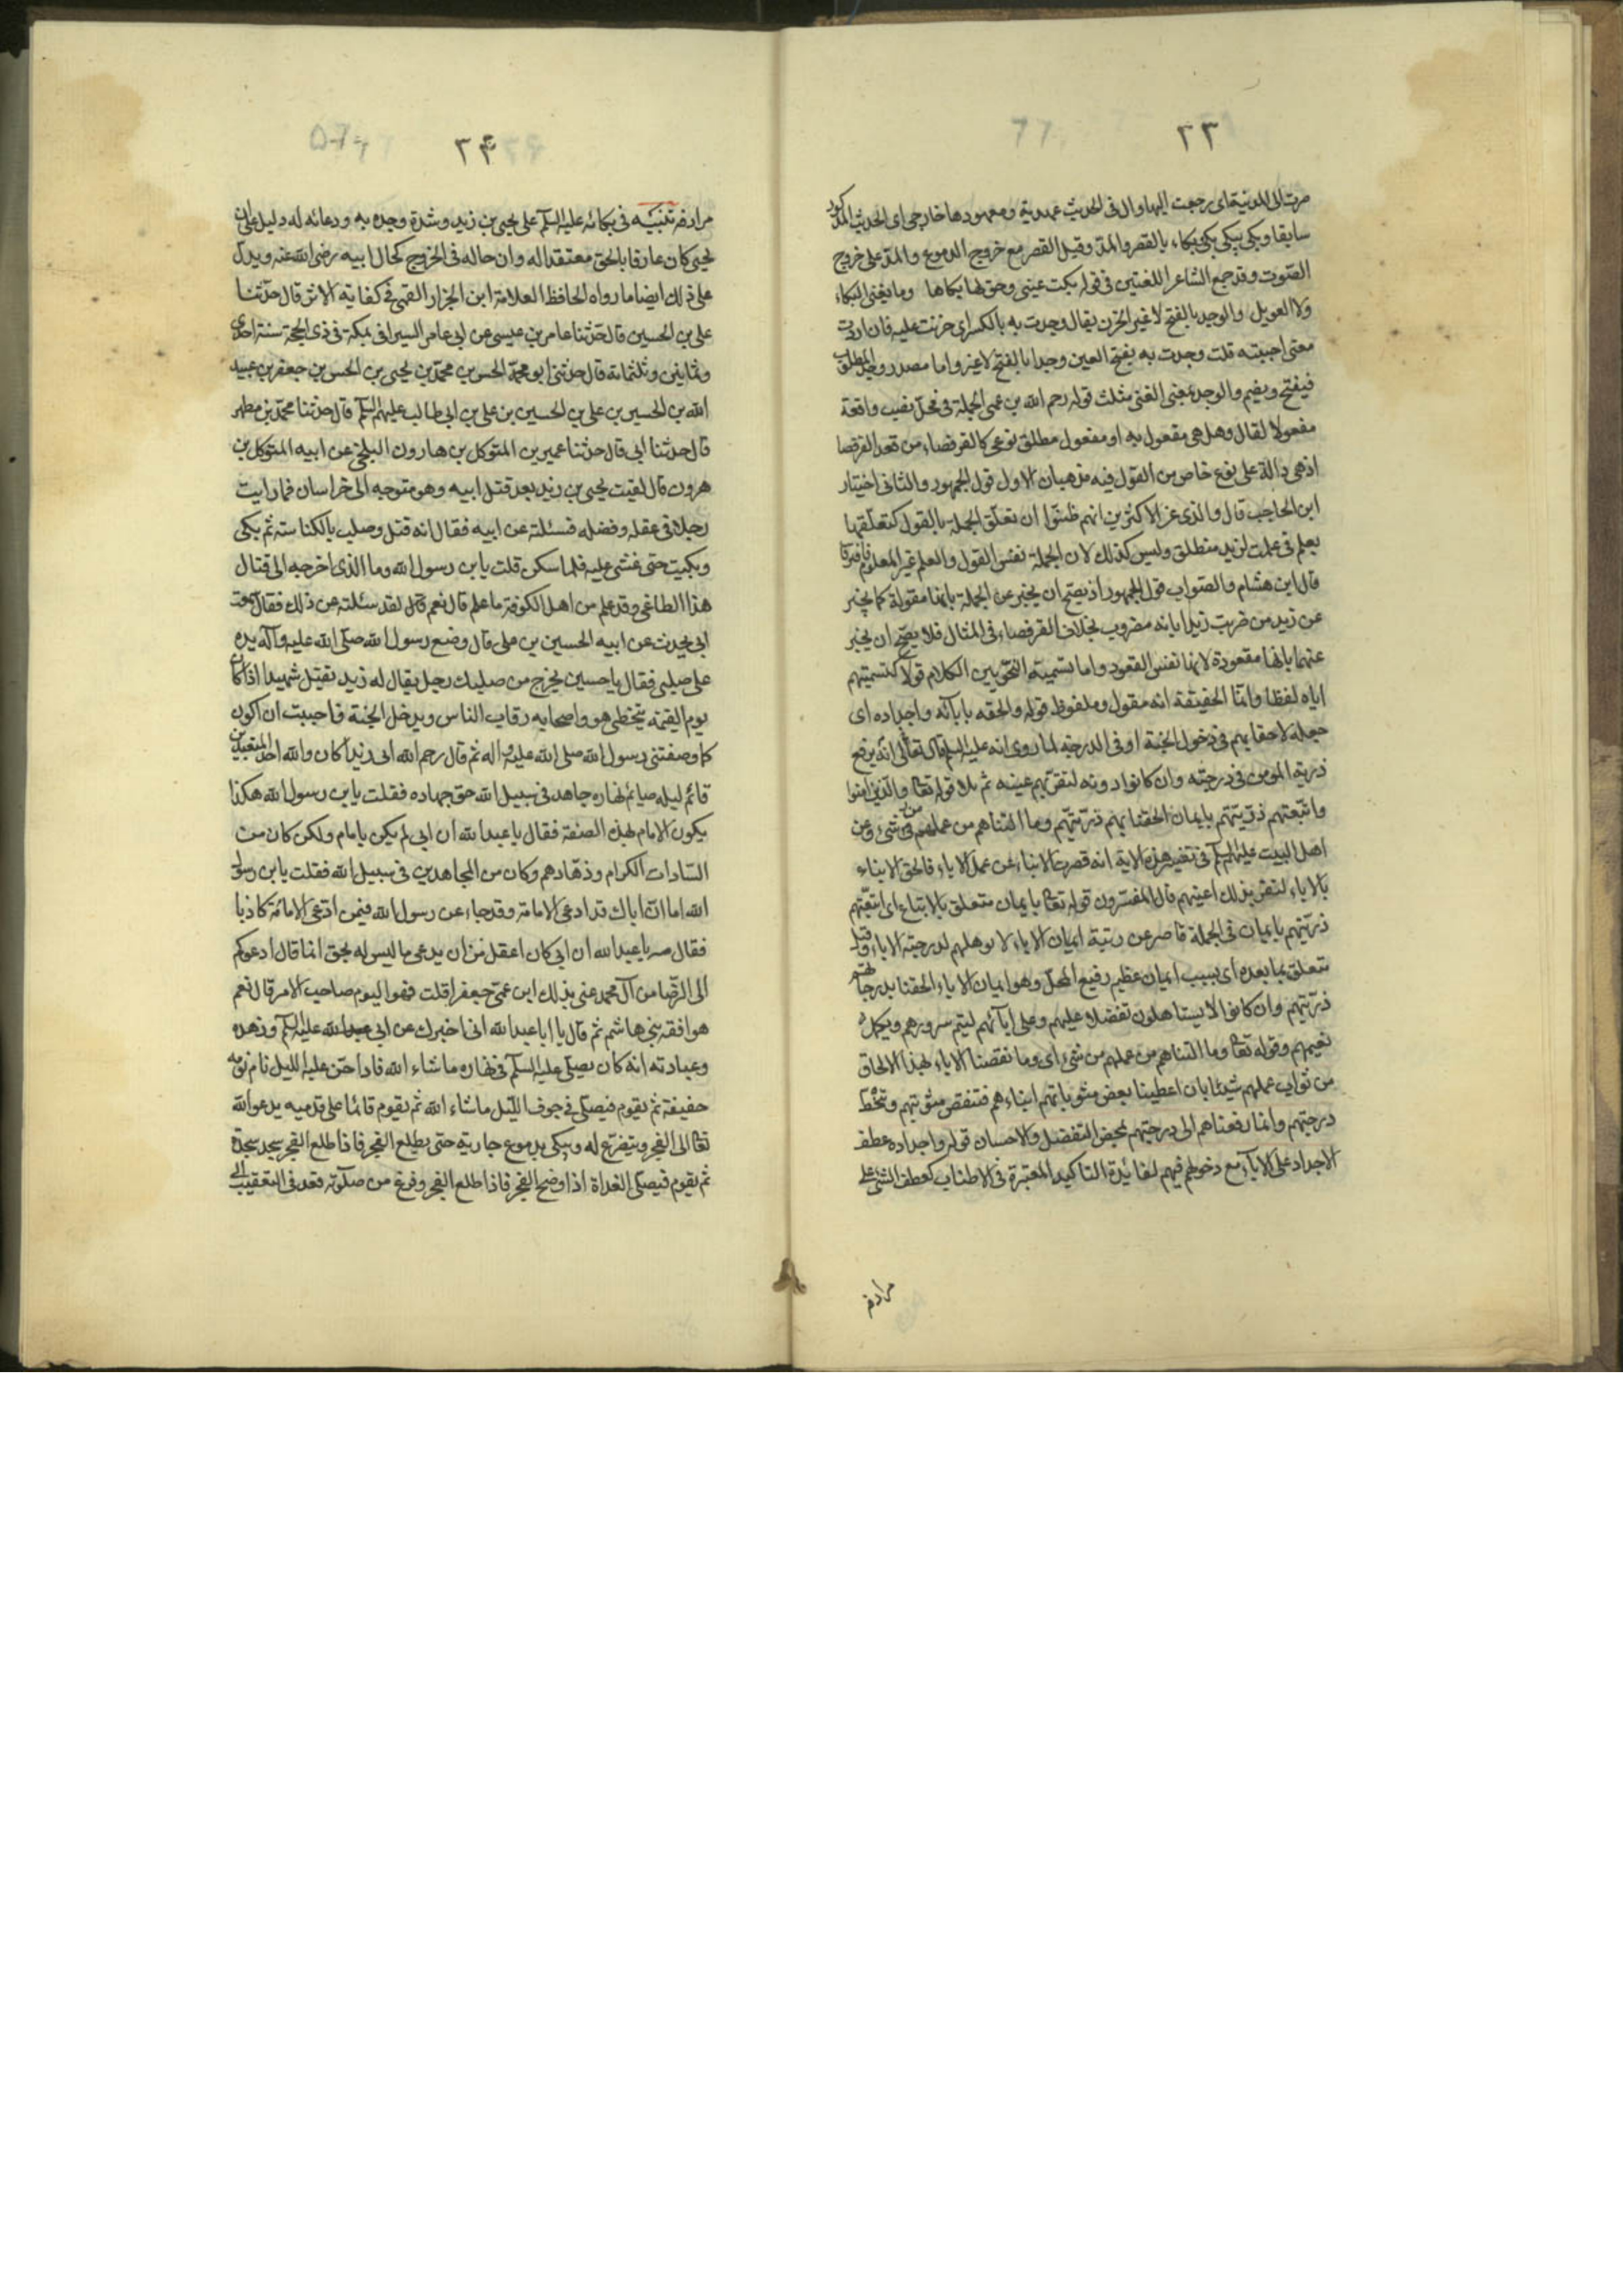 ٢٣
صرت الى المدينة اى رجعت اليها وال فى الحديث عهدية ومعهودها خارجى اى الحديث المذكور
سابقا وبكى يبكى بكى وبكاء بالقصر والمد وقيل القصر مع خروج الدموع والمد على خروج
الصوت وقد جمع الشاعر اللغتين فى قوله بكت عينى وحق لها بكاها وما يغنى البكاء
ولا العويل والوجد بالفتح لا غير الحزن يقال وجدت به بالكسر اى حزنت عليه فان اردت
معنى احببته قلت وجدت به بفتح العين وجدا بالفتح لا غير واما مصدر وجد المطلق
فيفتح ويضم والوجد بمعنى الغنى مثلث قوله رحم الله بن عمى الجملة فى محل نصب واقعة
مفعولا لقال وهل هى مفعول به او مفعول مطلق نوعى كالقرفصاء من قعد القرفصا
اذ هى دالة على نوع خاص من القول فيه مذهبان الاول قول الجمهور والثانى اختيار
ابن الحاجب قال والذى غر الاكثرين انهم ظنوا ان تعلق الجملة بالقول كتعلقها
بعلم فى علمت لزيد منطلق وليس كذلك لان الجملة نفس القول والعلم غير المعلوم فافترقا
قال ابن هشام والصواب قول الجمهور اذ يصح ان يخبر عن الجملة بانها مقولة كما يخبر
عن زيد من ضربت زيدا بانه مضروب بخلاف القرفصاء فى المثال فلا يصح ان يخبر
عنها بانها مقعودة لانها نفس القعود واما تسمية النحويين الكلام قولا كتسميتهم
اياه لفظا وانما الحقيقة انه مقول وملفوظ قوله والحقه بابائه واجداده اى
جعله لاحقا بهم فى دخول الجنة او فى الدرجة لما روى انه عليه السلم قال ان الله تعالى يرفع
ذرية المومن فى درجته وان كانوا دونه لتقر بهم عينه ثم تلا قوله تعالى والذين امنوا
واتبعتهم ذريتهم بايمان الحقنا بهم ذريتهم وما التناهم من عملهم من شىء وعن
اهل البيت عليهم السلم فى تفسير هذه الاية انه قصرت الابناء عن عمل الاباء فالحق الابناء
بالاباء لتقر بذلك اعينهم قال المفسرون قوله تعالى بايمان متعلق بالاتباع اى اتبعتهم
ذريتهم بايمان فى الجملة قاصر عن رتبة ايمان الاباء لا يوهلهم لدرجة الاباء وقيل
متعلق بما بعده اى بسبب ايمان عظيم رفيع المحل وهو ايمان الاباء الحقنا بدرجاتهم
ذريتهم وان كانوا لا يستاهلون تفضلا عليهم وعلى ابائهم ليتم سرورهم ويكمل
نعيمهم وقوله تعالى وما التناهم من عملهم من شىء اى وما نقصنا الاباء بهذا الالحاق
من ثواب عملهم شيئا بان اعطينا بعض مثوباتهم ابناءهم فتنقص مثوبتهم وتنحط
درجتهم وانما رفعناهم الى درجتهم بمحض التفضل والاحسان قوله واجداده عطف
الاجداد على الاباء مع دخولهم فيهم لفائدة التاكيد المعتبرة فى الاطناب كعطف الشىء على
مرادفه
٢٤
مرادفه تنبيه فى بكائه عليه السلم على يحيى بن زيد وشدة وجده به ودعائه له دليل على ان
يحيى كان عارفا بالحق معتقدا له وان حاله فى الخروج كحال ابيه رضى الله عنه ويدل
على ذلك ايضا ما رواه الحافظ العلامة ابن الخزار القمى فى كفاية الاثر قال حدثنا
على بن الحسين قال حدثنا عامر بن عيسى عن ابى عامر السيرافى بمكة فى ذى الحجة سنة احدى
وثمانين وثلثمائة قال حدثنى ابو محمد الحسن بن محمد بن يحيى بن الحسن بن جعفر بن عبيد
الله بن الحسين بن على بن الحسين بن على بن ابى طالب عليهم السلم قال حدثنا محمد بن مطهر
قال حدثنا ابى قال حدثنا عمير بن المتوكل بن هارون البلخى عن ابيه المتوكل بن
هرون قال لقيت يحيى بن زيد بعد قتل ابيه وهو متوجه الى خراسان فما رايت
رجلا فى عقله وفضله فسئلته عن ابيه فقال انه قتل وصلب بالكناسة ثم بكى
وبكيت حتى غشى عليه فلما سكن قلت يابن رسول الله وما الذى اخرجه الى قتال
هذا الطاغى وقد علم من اهل الكوفة ما علم قال نعم قال لقد سئلته عن ذلك فقال سمعت
ابى يحدث عن ابيه الحسين بن على قال وضع رسول الله صلى الله عليه وآله يده
على صلبى فقال يا حسين يخرج من صلبك رجل يقال له زيد يقتل شهيدا اذا كان
يوم القيمة يتخطى هو واصحابه رقاب الناس ويدخل الجنة فاحببت ان اكون
كما وصفتنى رسول الله صلى الله عليه واله ثم قال رحم الله ابى زيدا كان والله احد المتعبدين
قائم ليله صائم نهاره جاهد فى سبيل الله حق جهاده فقلت يابن رسول الله هكذا
يكون الامام بهذه الصفة فقال يا عبد الله ان ابى لم يكن بامام ولكن كان من
السادات الكرام وزهادهم وكان من المجاهدين فى سبيل الله فقلت يابن رسول
الله اما ان اباك قد ادعى الامامة وقد جاء عن رسول الله فيمن ادعى الامامة كاذبا
فقال مه يا عبد الله ان ابى كان اعقل من ان يدعى ما ليس له بحق انما قال ادعوكم
الى الرضا من آل محمد عنى بذلك ابن عمى جعفرا قلت فهو اليوم صاحب الامر قال نعم
هو افقه بنى هاشم ثم قال يا ابا عبد الله انى اخبرك عن ابى عليه السلم وزهده
وعبادته انه كان يصلى عليه السلم فى نهاره ما شاء الله فاذا جن عليه الليل نام نومة
خفيفة ثم يقوم فيصلى فى جوف الليل ما شاء الله ثم يقوم قائما على قدميه يدعو الله
تعالى الى الفجر ويتضرع له ويبكى بدموع جارية حتى يطلع الفجر فاذا طلع الفجر سجد سجدة
ثم يقوم فيصلى الغداة اذا وضح الفجر فاذا طلع الفجر وفرغ من صلوته قعد فى التعقيب الى